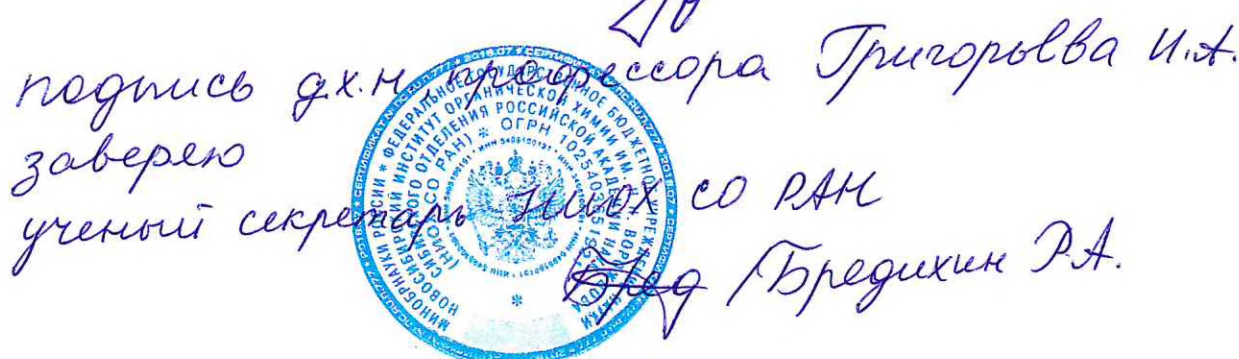 подпись д.х.н, профессора Григорьева И.А.
заверяю
ученый секретарь НИОХ СО РАН
Бред /Бредихин Р.А.
МИНОБРНАУКИ РОССИИ * ФЕДЕРАЛЬНОЕ ГОСУДАРСТВЕННОЕ БЮДЖЕТНОЕ УЧРЕЖДЕНИЕ НАУКИ
НОВОСИБИРСКИЙ ИНСТИТУТ ОРГАНИЧЕСКОЙ ХИМИИ ИМ. Н.Н. ВОРОЖЦОВА
СИБИРСКОГО ОТДЕЛЕНИЯ РОССИЙСКОЙ АКАДЕМИИ НАУК
(НИОХ СО РАН) * ОГРН